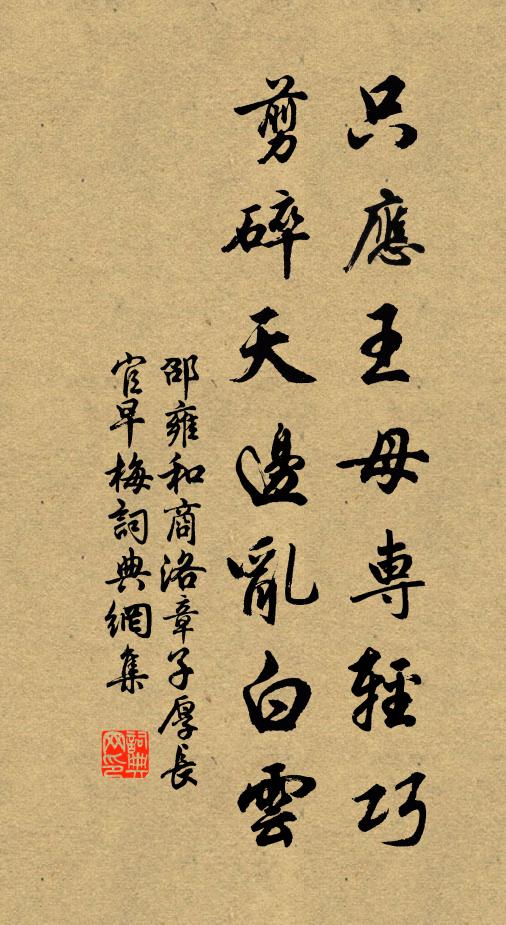 只應王母專輕巧
剪碎天邊亂白雲
邵雍和商洛章子厚長
官早梅詞典網集
詞典
网印